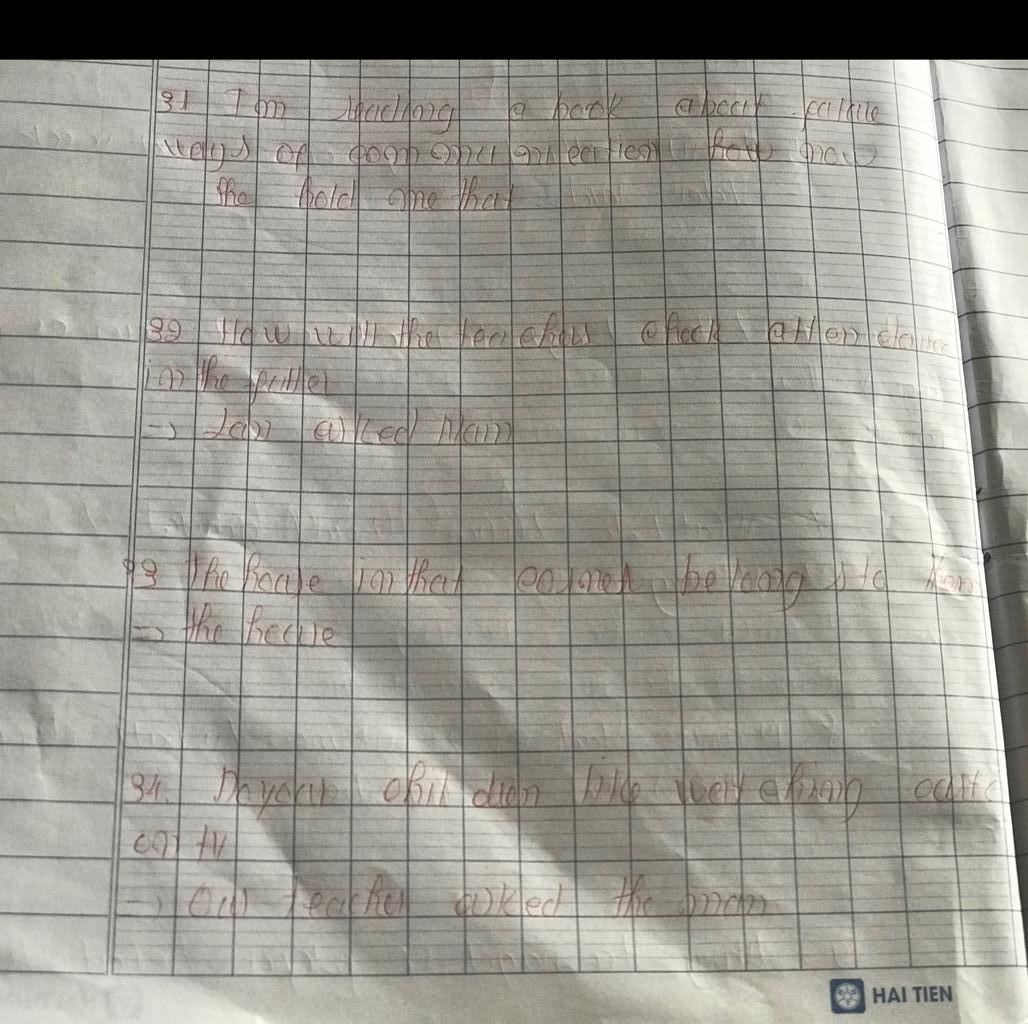 31 I'm reading a book about future
ways of communication now
the told me that
32 How will the teachers check attendance
in the future
-> Lan asked Nam
33 The house in that corner belongs to Ken
-> the house
34. Do your children like watching cartoons
on TV
-> Our teacher asked the man
HAI TIEN